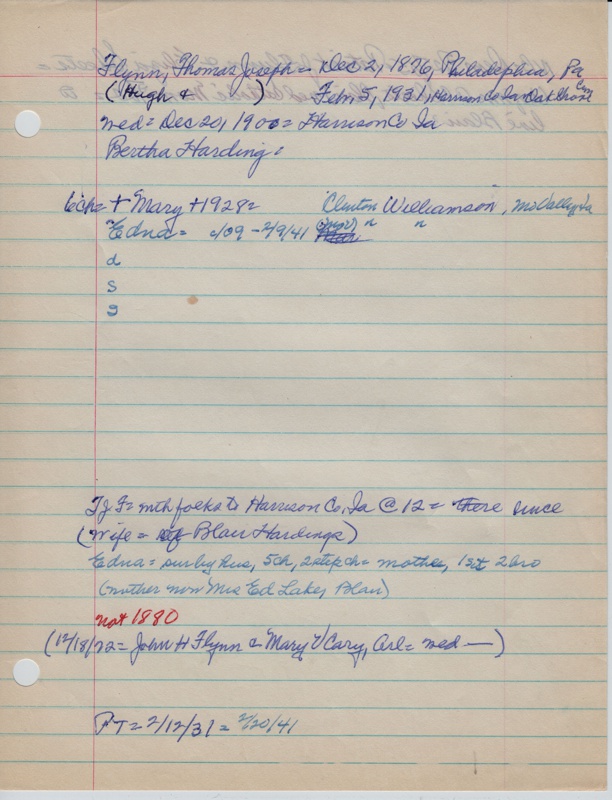 Flynn, Thomas Joseph = Dec 2, 1876, Philadephia, Pa
(Hugh & ) Feb 5, 1931, Harrison Co Ia Oak Grove Cem
wed = Dec 20, 1900 = Harrison Co Ia
Bertha Harding =
6ch = + Mary + 1928 = Clinton Williamson, Mo Valley, Ia
Edna = 1/09 - 2/9/41 " "
d
s
g
TJF = with folks to Harrison Co, Ia @ 12 = there since
(wife = of Blair Hardings)
Edna = surv by hus, 5ch, 2 step ch = mother, 1 sis 2 bro
(mother now Mrs Ed Lakes, Blair)
not 1880
(12/18/72 = John H Flynn & Mary V Cary, Arl = wed —)
PT = 2/12/31 = 2/20/41